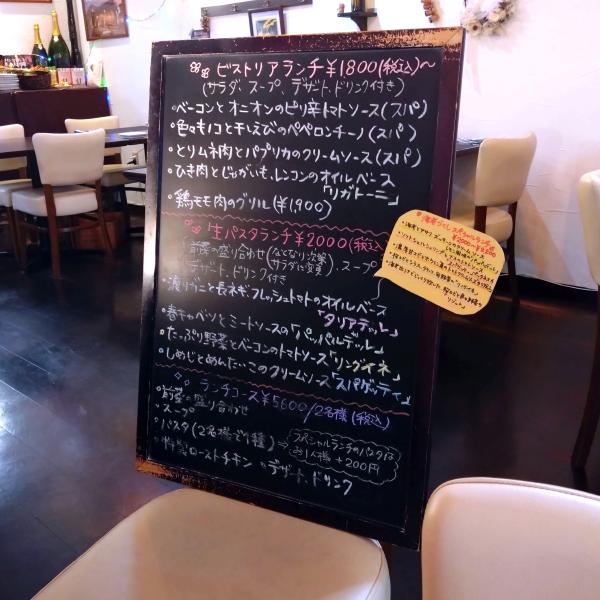 ビストリアランチ¥1800(税込)〜
(サラダ、スープ、デザート、ドリンク付き)
・ベーコンとオニオンのピリ辛トマトソース(スパ)
・色々キノコと干えびのペペロンチーノ(スパ)
・とりムネ肉とパプリカのクリームソース(スパ)
・ひき肉とじゃがいも、レンコンのオイルベース
「リガトーニ」
・鶏モモ肉のグリル(¥1,900)
生パスタランチ¥2000(税込)
前菜の盛り合わせ(なくなり次第サラダに変更)、スープ
デザート、ドリンク付き
・渡りガニと長ネギ、フレッシュトマトのオイルベース
「タリアテッレ」
・春キャベツとミートソースの「パッパルデッレ」
・たっぷり野菜とベーコンのトマトソース「リングイネ」
・しめじとめんたいこのクリームソース「スパゲッティ」
ランチコース¥5600/2名様(税込)
・前菜の盛り合わせ
・スープ
・パスタ(2名様で1種)⇒
スペシャルランチのパスタは
お1人様+200円
・特製ローストチキン ・デザート、ドリンク